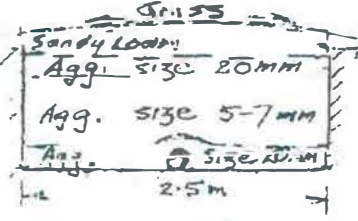 Grass
Sandy Loam
Agg. size 20mm
Agg. size 5-7mm
Agg. size
2.5m